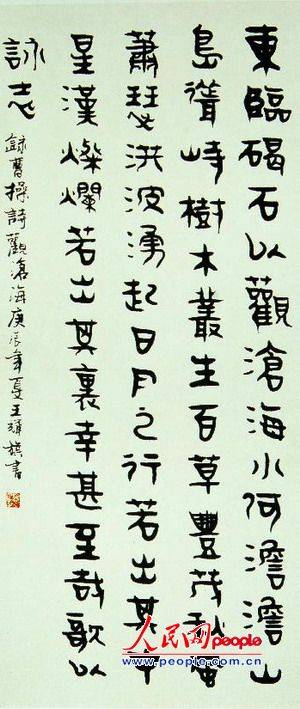 東臨碣石以觀滄海水何澹澹山
島聳峙樹木叢生百草豐茂秋風
蕭瑟洪波湧起日月之行若出其中
星漢燦爛若出其裏幸甚至哉歌以
詠志
錄曹操詩觀滄海庚辰年夏王書
人民网people
www.people.com.cn